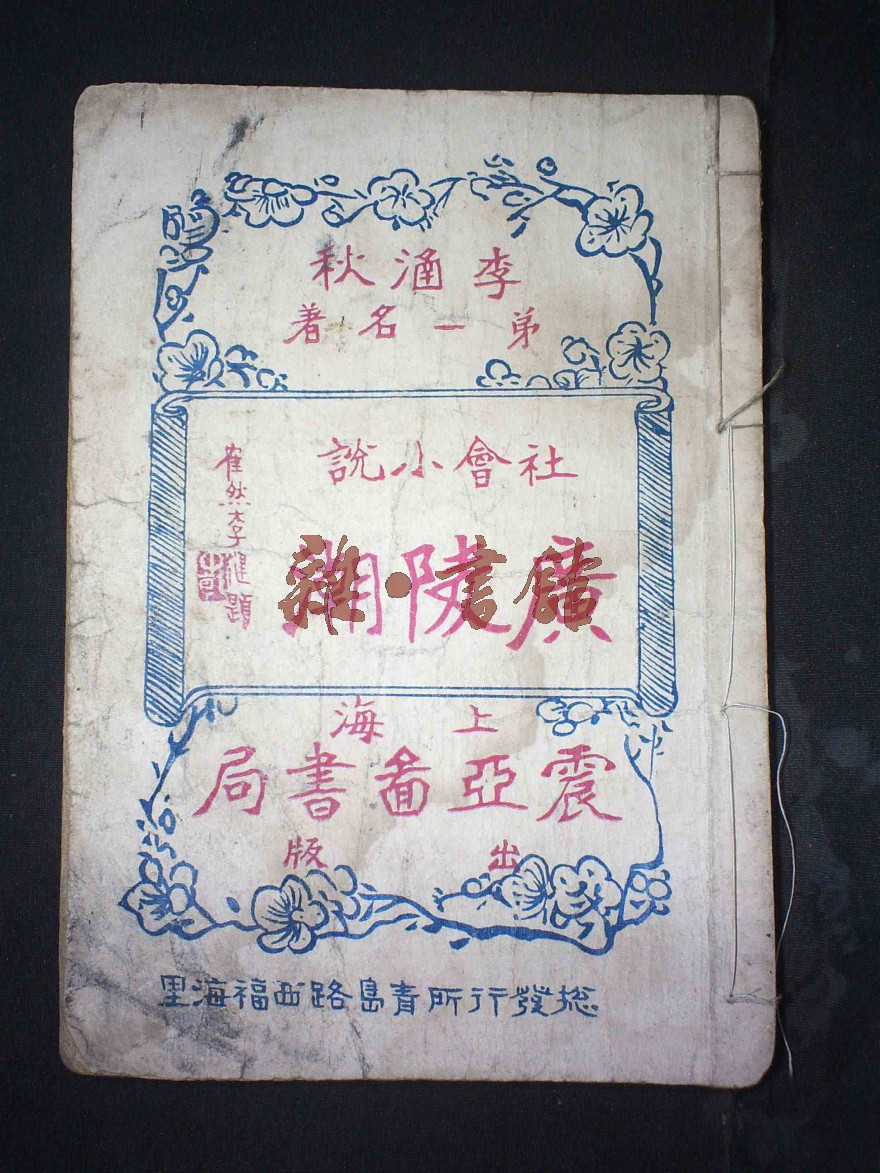 李涵秋
弟一名著
社會小說
廣陵潮
隺然李健題
上海
震亞啚書局
出版
総發行所青島路西福海里
雜·書館